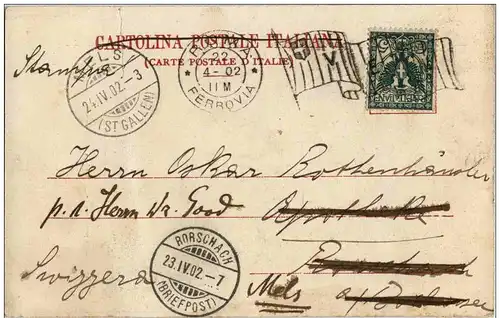 CARTOLINA POSTALE ITALIANA
(CARTE POSTALE D'ITALIE)
Stampe
ROMA
22
4-02
11 M
FERROVIA
MELS
24.IV.02.-3
(ST GALLEN)
Herrn Oskar Rothenhäusler
p. a. Herrn Dr. Good Apotheke
Rorschach
Svizzera Mels a/Bodensee
RORSCHACH
23.IV.02.-7
(BRIEFPOST)